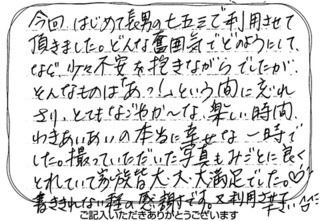 今回、はじめて長男の七五三で利用させて
頂きました。どんな雰囲気でどのようにして、
など、少々不安を抱きながらでしたが、
そんなものは「あっ!」という間に忘れ
さり、とてもなごやか~な、楽しい時間、
わきあいあいの本当に幸せな一時で
した。撮っていただいた写真もみごとに良く
とれていて家族皆大、大、大満足でした。♡
書ききれない程の感謝です。又利用させて
ご記入いただきありがとうございます